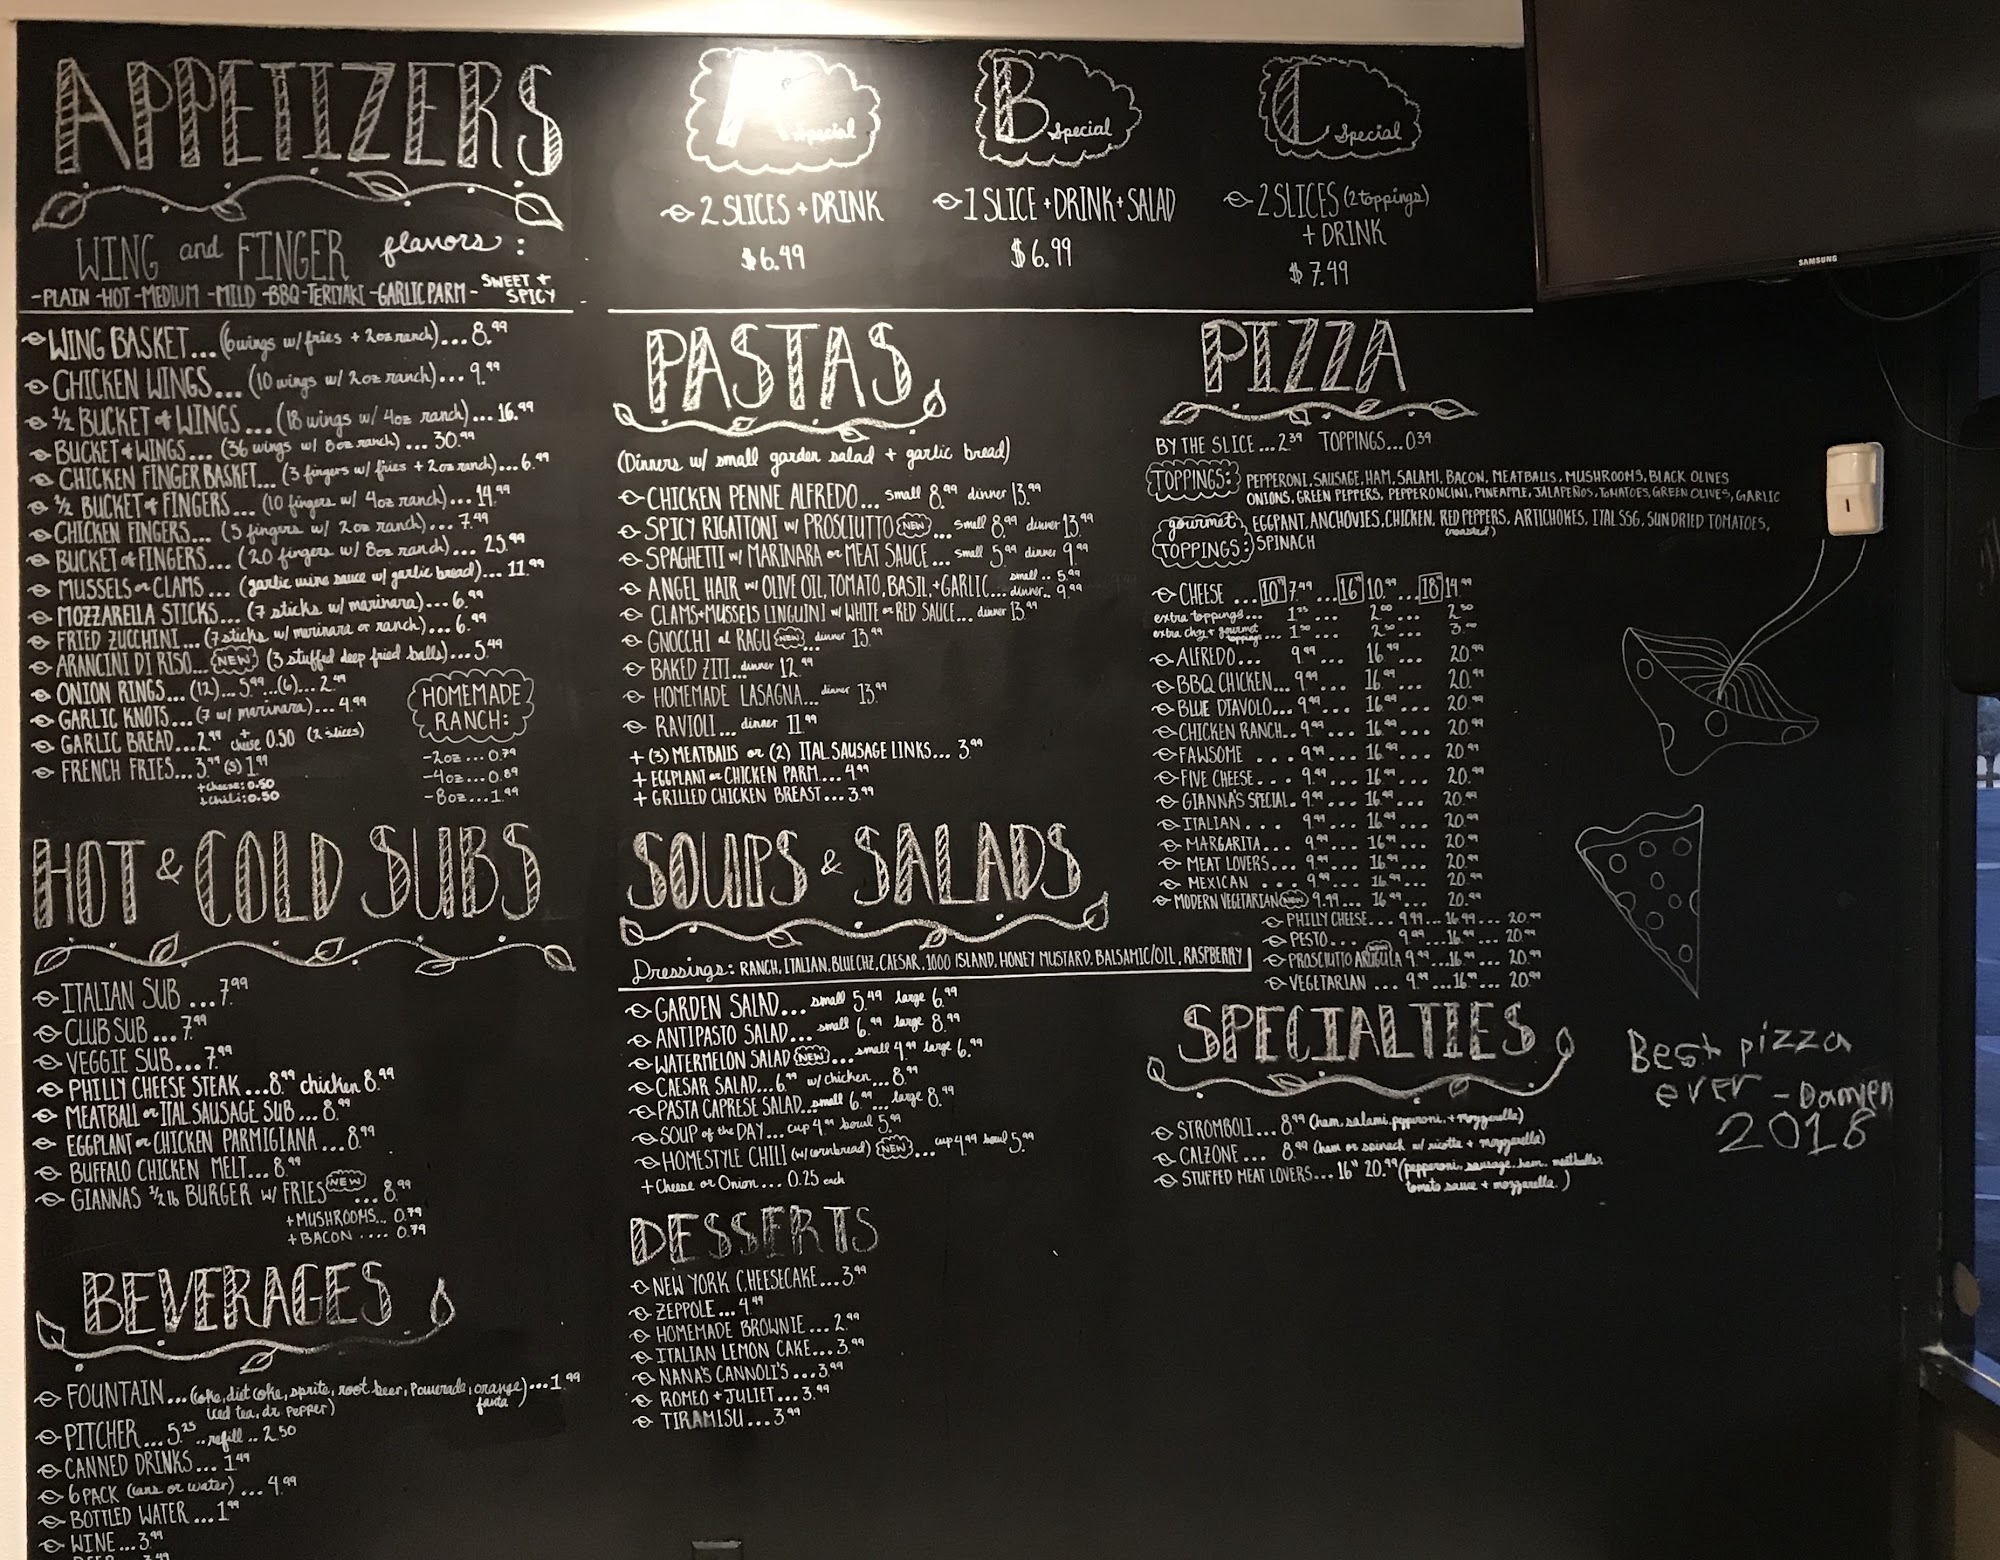 APPETIZERS
WING and FINGER flavors:
-PLAIN -HOT -MEDIUM -MILD -BBQ -TERIYAKI -GARLIC PARM - SWEET + SPICY
WING BASKET... (6 wings w/ fries + 2oz ranch)... 8.99
CHICKEN WINGS... (10 wings w/ 2oz ranch)... 9.99
1/2 BUCKET of WINGS... (18 wings w/ 4oz ranch)... 16.99
BUCKET of WINGS... (36 wings w/ 8oz ranch)... 30.99
CHICKEN FINGER BASKET... (3 fingers w/ fries + 2oz ranch)... 6.99
1/2 BUCKET of FINGERS... (10 fingers w/ 4oz ranch)... 14.99
CHICKEN FINGERS... (5 fingers w/ 2oz ranch)... 7.99
BUCKET of FINGERS... (20 fingers w/ 8oz ranch)... 25.99
MUSSELS or CLAMS... (garlic wine sauce w/ garlic bread)... 11.99
MOZZARELLA STICKS... (7 sticks w/ marinara)... 6.99
FRIED ZUCCHINI... (7 sticks w/ marinara or ranch)... 6.99
ARANCINI DI RISO... NEW (3 stuffed deep fried balls)... 5.49
ONION RINGS... (12)... 5.99 ...(6)... 2.49
GARLIC KNOTS... (7 w/ marinara)... 4.99
GARLIC BREAD... 2.99 + cheese 0.50 (2 slices)
FRENCH FRIES... 3.99 (s) 1.99
+cheese: 0.50
+chili: 0.50
HOMEMADE
RANCH:
-2oz... 0.79
-4oz... 0.89
-8oz... 1.99
HOT & COLD SUBS
ITALIAN SUB ... 7.99
CLUB SUB ... 7.99
VEGGIE SUB... 7.99
PHILLY CHEESE STEAK ... 8.99 chicken 8.99
MEATBALL or ITAL SAUSAGE SUB ... 8.99
EGGPLANT or CHICKEN PARMIGIANA.... 8.99
BUFFALO CHICKEN MELT... 8.99
GIANNAS 1/2 lb BURGER w/ FRIES NEW ... 8.99
+MUSHROOMS... 0.79
+BACON .... 0.79
BEVERAGES
FOUNTAIN... (coke, diet coke, sprite, root beer, Powerade, orange fanta)... 1.99
iced tea, dr. pepper)
PITCHER... 5.25 .. refill .. 2.50
CANNED DRINKS... 1.49
6 PACK (cans or water) ... 4.99
BOTTLED WATER ... 1.99
WINE ... 3.99
A Special
2 SLICES + DRINK
$6.49
B Special
1 SLICE + DRINK + SALAD
$6.99
C Special
2 SLICES (2 toppings)
+ DRINK
$7.49
PASTAS
(Dinners w/ small garden salad + garlic bread)
CHICKEN PENNE ALFREDO... small 8.99 dinner 13.99
SPICY RIGATTONI w/ PROSCIUTTO NEW ... small 8.99 dinner 13.99
SPAGHETTI w/ MARINARA or MEAT SAUCE... small 5.99 dinner 9.99
ANGEL HAIR w/ OLIVE OIL, TOMATO, BASIL, + GARLIC... small .. 5.99 dinner.. 9.99
CLAMS + MUSSELS LINGUINI w/ WHITE or RED SAUCE... dinner 13.99
GNOCCHI al RAGU NEW ... dinner 13.99
BAKED ZITI... dinner 12.99
HOMEMADE LASAGNA... dinner 13.99
RAVIOLI... dinner 11.99
+ (3) MEATBALLS or (2) ITAL SAUSAGE LINKS... 3.99
+ EGGPLANT or CHICKEN PARM.... 4.99
+ GRILLED CHICKEN BREAST... 3.99
SOUPS & SALADS
Dressings: RANCH, ITALIAN, BLUE CHZ, CAESAR, 1000 ISLAND, HONEY MUSTARD, BALSAMIC/OIL, RASPBERRY
GARDEN SALAD... small 5.49 large 6.99
ANTIPASTO SALAD... small 6.99 large 8.99
WATERMELON SALAD NEW ... small 4.99 large 6.99
CAESAR SALAD... 6.99 w/ chicken... 8.99
PASTA CAPRESE SALAD... small 6.99 ... large 8.99
SOUP of the DAY... cup 4.99 bowl 5.99
HOMESTYLE CHILI (w/ cornbread) NEW ... cup 4.99 bowl 5.99
+ Cheese or Onion... 0.25 each
DESSERTS
NEW YORK CHEESECAKE... 3.99
ZEPPOLE... 4.99
HOMEMADE BROWNIE ... 2.99
ITALIAN LEMON CAKE... 3.99
NANA'S CANNOLI'S ... 3.99
ROMEO + JULIET... 3.99
TIRAMISU... 3.99
PIZZA
BY THE SLICE ... 2.39 TOPPINGS... 0.39
TOPPINGS: PEPPERONI, SAUSAGE, HAM, SALAMI, BACON, MEATBALLS, MUSHROOMS, BLACK OLIVES
ONIONS, GREEN PEPPERS, PEPPERONCINI, PINEAPPLE, JALAPEÑOS, TOMATOES, GREEN OLIVES, GARLIC
gourmet TOPPINGS: EGGPANT, ANCHOVIES, CHICKEN, RED PEPPERS, ARTICHOKES, ITAL SSG, SUNDRIED TOMATOES,
(roasted)
SPINACH
CHEESE ... 10" 7.99 ... 16" 10.99 ... 18" 14.99
extra toppings... 1.25 ... 2.00 ... 2.50
extra chz + gourmet toppings... 1.50 ... 2.50 ... 3.00
ALFREDO... 9.99 ... 16.99 ... 20.99
BBQ CHICKEN... 9.99 ... 16.99 ... 20.99
BLUE DIAVOLO... 9.99 ... 16.99 ... 20.99
CHICKEN RANCH.. 9.99 ... 16.99 ... 20.99
FAWSOME ... 9.99 ... 16.99 ... 20.99
FIVE CHEESE... 9.99 ... 16.99 ... 20.99
GIANNA'S SPECIAL. 9.99 ... 16.99 ... 20.99
ITALIAN... 9.99 ... 16.99 ... 20.99
MARGARITA... 9.99 ... 16.99 ... 20.99
MEAT LOVERS... 9.99 ... 16.99 ... 20.99
MEXICAN ... 9.99 ... 16.99 ... 20.99
MODERN VEGETARIAN NEW 9.99 ... 16.99 ... 20.99
PHILLY CHEESE... 9.99 ... 16.99 ... 20.99
PESTO... 9.99 ... 16.99 ... 20.99
PROSCIUTTO ARUGULA NEW 9.99 ... 16.99 ... 20.99
VEGETARIAN ... 9.99 ... 16.99 ... 20.99
SPECIALTIES
STROMBOLI... 8.99 (ham, salami, pepperoni, + mozzarella)
CALZONE ... 8.99 (ham or spinach w/ ricotta + mozzarella)
STUFFED MEAT LOVERS... 16" 20.99 (pepperoni, sausage, ham, meatballs,
tomato sauce + mozzarella.)
SAMSUNG
Best pizza
ever - Damien
2018